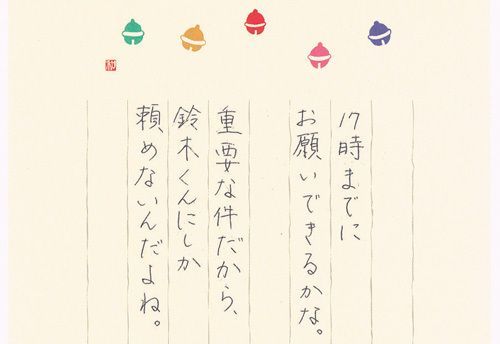 17時までに
お願いできるかな。
重要な件だから、
鈴木くんにしか
頼めないんだよね。